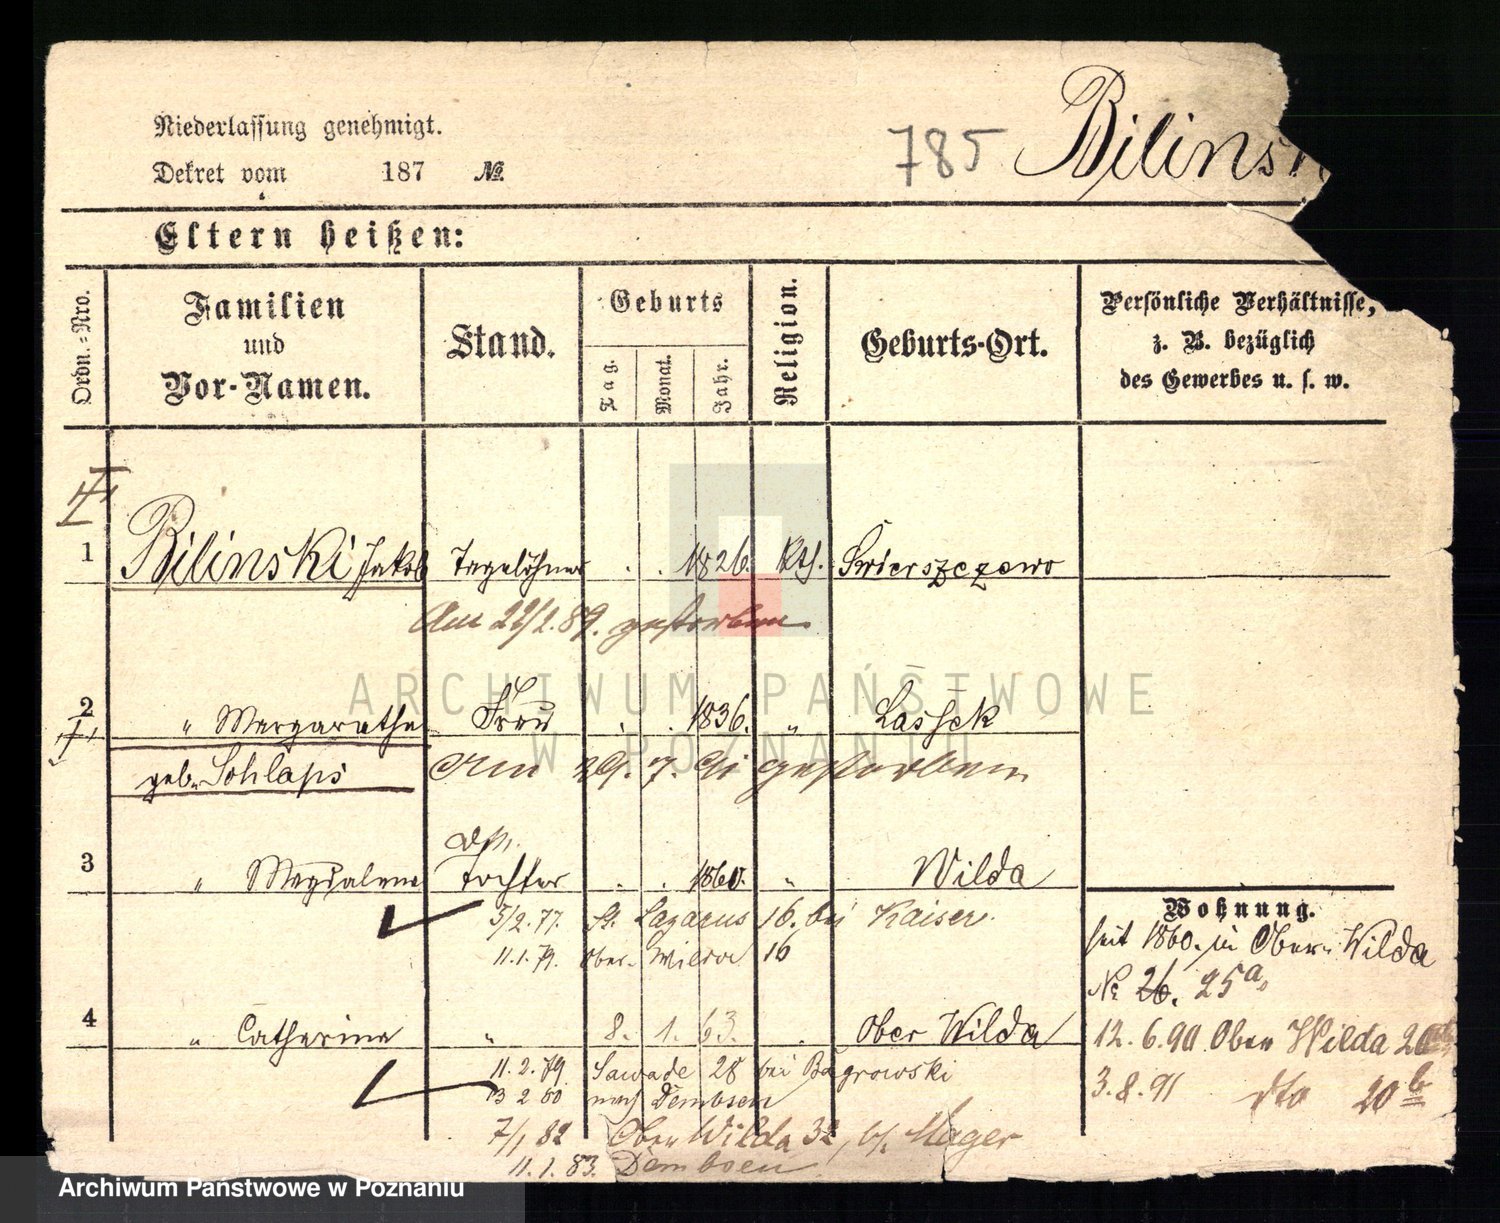 Niederlassung genehmigt.
785 Bilinsk
Dekret vom 187 №.
Eltern heißen:
Ordn.=Nro.
Familien
und
Vor-Namen.
Stand.
Geburts
Tag.
Monat.
Jahr.
Religion.
Geburts-Ort.
Persönliche Verhältnisse,
z. B. bezüglich
des Gewerbes u. s. w.
1 Bilinski Jakob Tagelöhner . . 1826. Kth. Świerszczewo
Am 22/2.89. gestorben
2 " Margaretha Frau . . 1836. "
geb. Am 29. 7. 91 gestorben
3 " Magdalena Tochter . . 1860. " Wilda
5/2.77. St. Lazarus 16. bei Kaiser.
11.1.79. Ober- Wilda 16
Wohnung.
seit 1860. in Ober-Wilda
№ 26. 25a.
4 " Catharina " 8. 1. 63. . Ober Wilda
12.6.90 Ober Wilda
11.2.79. Sawade 28 bei Bagrowski
3.8.91 dto 20b
nach Dembsen
7/1 82 Ober Wilda 32, b/. Mager
11.1.83. Dembsen
ARCHIWUM PAŃSTWOWE
W POZNANIU
Archiwum Państwowe w Poznaniu